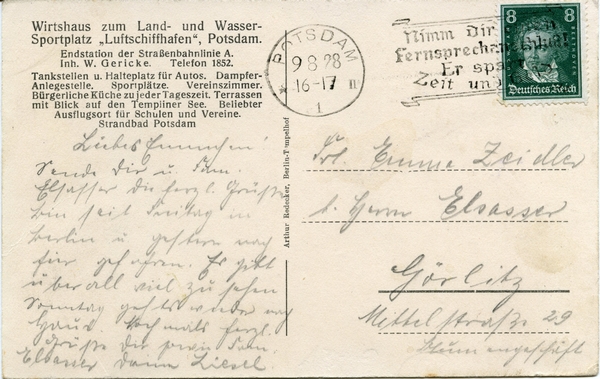 Wirtshaus zum Land- und Wasser-
Sportplatz „Luftschiffhafen“, Potsdam.
Endstation der Straßenbahnlinie A.
Inh. W. Gericke. Telefon 1852.
Tankstellen u. Halteplatz für Autos. Dampfer-
Anlegestelle. Sportplätze. Vereinszimmer.
Bürgerliche Küche zu jeder Tageszeit. Terrassen
mit Blick auf den Templiner See. Beliebter
Ausflugsort für Schulen und Vereine.
Strandbad Potsdam
POTSDAM
9 8 28
16-17
1 n
Nimm Dir
Fernsprechanschluß
Er spart
Zeit und
8 8
Deutsches Reich
Arthur Redecker, Berlin-Tempelhof
Liebes Emmchen!
Sende Dir u. Fam.
Elsasser die herzl. Grüße
bin seit Freitag in
Berlin u. gestern nach
hier gefahren. Es gibt
überall viel zu sehen
Sonntag gehts wieder nach
Haus. Nochmals herzl.
Grüße Dir sowie Fam.
Elsasser Deine Liesel.
Frl. Emma Zeidler
b. Herrn Elsasser
Görlitz
Mittelstraße 29
Blumengeschäft